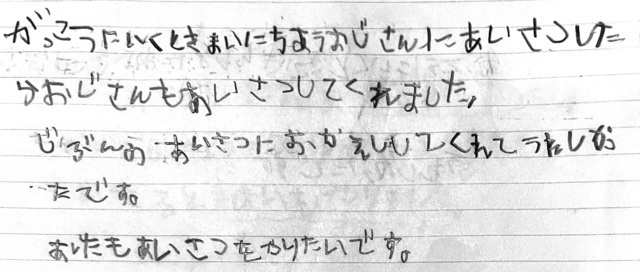 がっこうにいくときまいにちよううおじさんにあいさつした
らおじさんもあいさつしてくれました。
じぶんのあいさつにおかえししてくれてうれしか
たです。
あしたもあいさつをやりたいです。